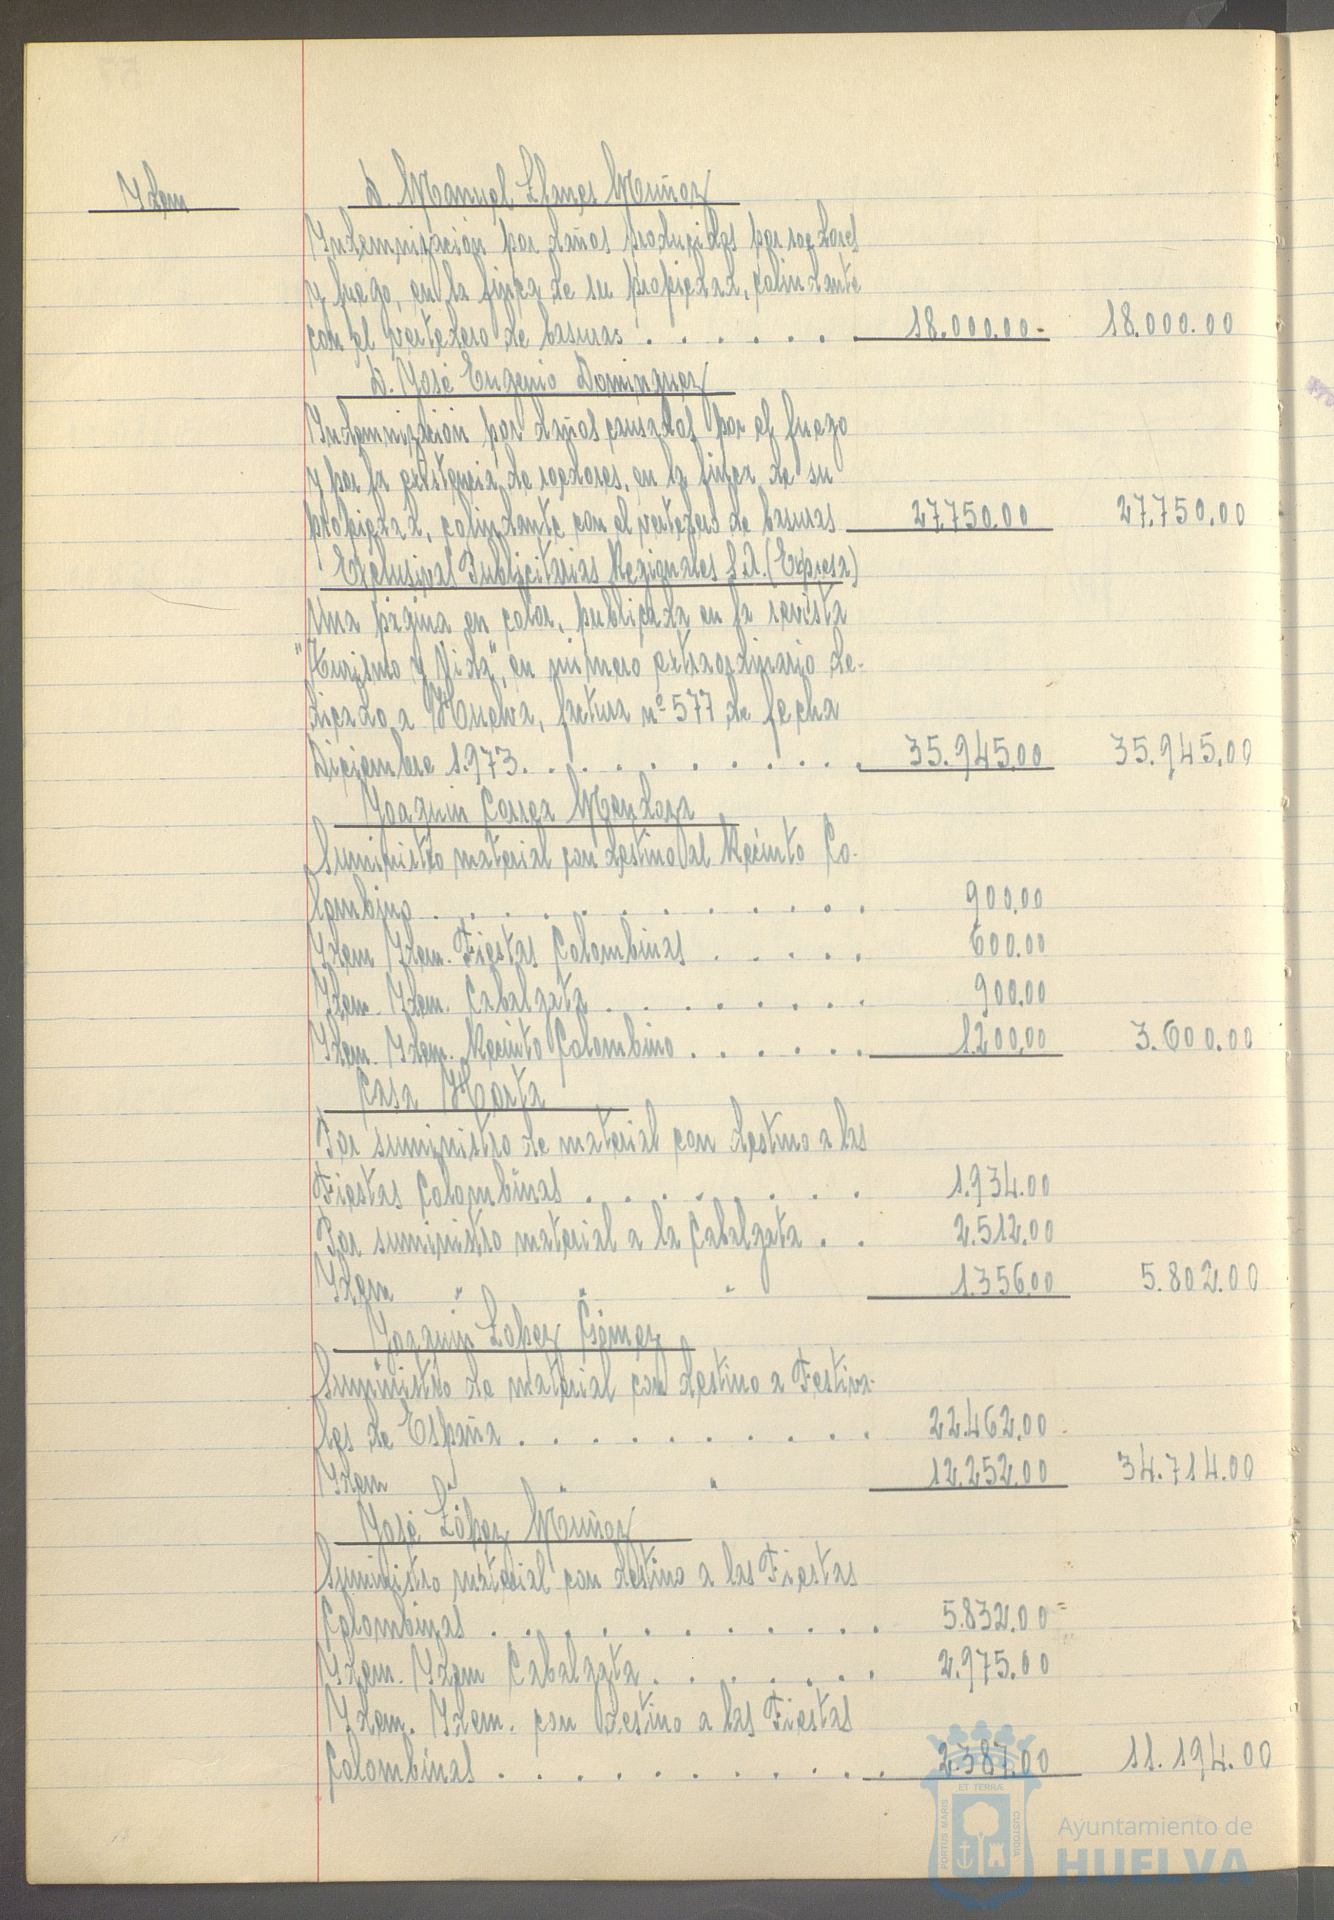 Ydem
D. Manuel Llanes Muñoz
Yndemnización por daños producidos por roedores
y fuego, en la finca de su propiedad, colindante
con el vertedero de basuras . . . . . . 18.000.00- 18.000.00
D. José Eugenio Dominguez
Yndemnización por daños causados por el fuego
y por la existencia de roedores, en la finca de su
propiedad, colindante con el vertedero de basuras 27.750.00 27.750.00
Exclusivas Publicitarias Regionales S.A. (Expresa)
Una página en color, publicada en la revista
"Turismo y Vida", en número extraordinario de-
dicado a Huelva, factura nº 577 de fecha
Diciembre 1.973. . . . . . . . . . 35.945.00 35.945.00
Joaquin Correa Mendoza
Suministro material con destino al Recinto Co-
lombino . . . . . . . . . . . . 900.00
Ydem Ydem. Fiestas Colombinas . . . . . 600.00
Ydem. Ydem. Cabalgata . . . . . . . . 900.00
Ydem. Ydem. Recinto Colombino . . . . . . 1.200.00 3.600.00
Casa Horta
Por suministro de material con destino a las
Fiestas Colombinas . . . . . . . . 1.934.00
Por suministro material a la Cabalgata . . 2.512.00
Ydem " " " 1.356.00 5.802.00
Joaquin Lopez Gómez
Suministro de material con destino a Festiva-
les de España . . . . . . . . . . 22.462.00
Ydem " " " 12.252.00 34.714.00
José López Muñoz
Suministro material con destino a las Fiestas
Colombinas . . . . . . . . . . . 5.832.00=
Ydem. Ydem Cabalgata . . . . . . . 2.975.00
Ydem. Ydem. con destino a las Fiestas
Colombinas . . . . . . . . . . . 2.387.00 11.194.00
PORTUS MARIS ET TERRÆ CUSTODIA
Ayuntamiento de
HUELVA